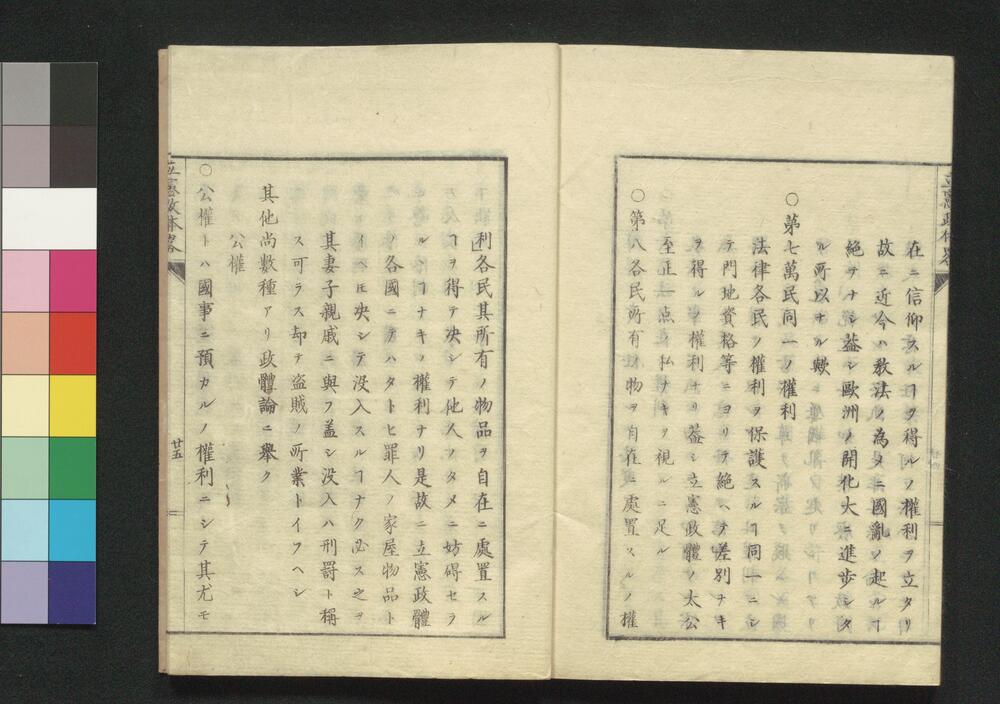 在ニ信仰スルヿヲ得ルノ權利ヲ立タリ
故ニ近今ハ敎法ノ為メニ國亂ノ起ルヿ
絶テナシ蓋シ歐洲ノ開化大ニ進歩シタ
ル所以ナル歟
○第七萬民同一ノ權利
法律各民ノ權利ヲ保護スルヿ同一ニシ
テ門地資格等ニヨリテ絶ヘテ差別ナキ
ヲ得ルノ權利ナリ蓋シ立憲政體ノ太公
至正一点ノ私ナキヲ視ルニ足ル
○第八各民所有ノ物ヲ自在ニ處置スルノ權
利各民其所有ノ物品ヲ自在ニ處置スル
ヿヲ得テ决シテ他人ノタメニ妨碍セラ
ルヽヿナキノ權利ナリ是故ニ立憲政體
ノ各國ニテハタトヒ罪人ノ家屋物品ト
イヘ𪜈决シテ没入スルヿナク必ス之ヲ
其妻子親戚ニ與フ盖シ没入ハ刑罰ト稱
ス可ラス却テ盗賊ノ所業トイフヘシ
其他尚數種アリ政體論ニ擧ク
公權
○公權トハ國事ニ預カルノ權利ニシテ其尤モ
立憲政体畧
廿五